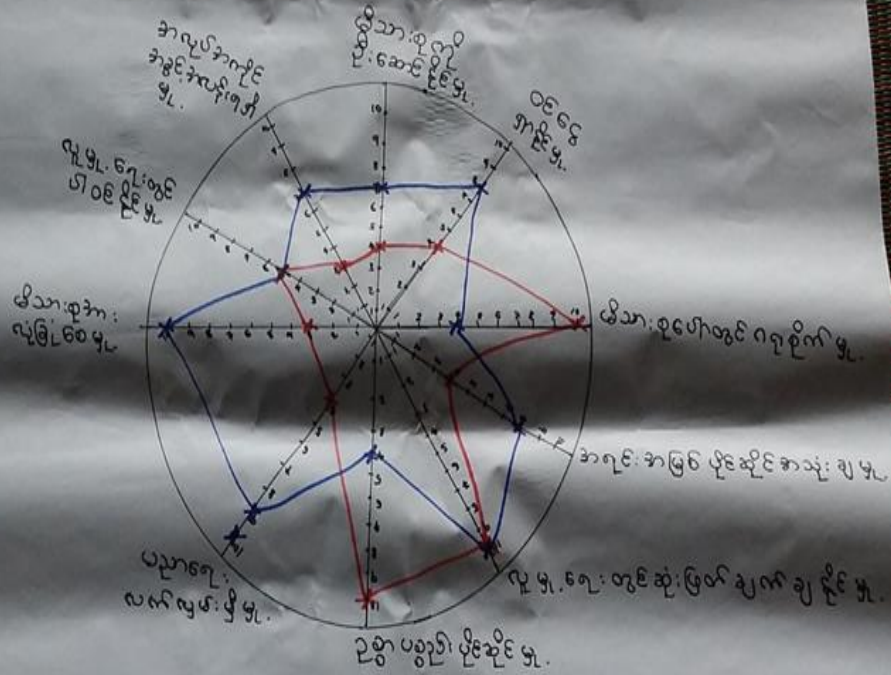 မိသားစုကို
ဦးဆောင်နိုင်မှု.
ဝင်ငွေ
ရှာနိုင်မှု.
မိသားစုပေါ်တွင် ဂရုစိုက်မှု.
အရင်းအမြစ် ပိုင်ဆိုင်အသုံးချမှု.
လူမှုရေးတွင်ဆုံးဖြတ်ချက်ချနိုင်မှု.
ဥစ္စာပစ္စည်းပိုင်ဆိုင်မှု.
ပညာရေး
လက်လှမ်းမှီမှု.
မိသားစုအား
လုံခြုံစေမှု.
လူမှုရေးတွင်
ပါဝင်နိုင်မှု.
အလုပ်အကိုင်
အခွင့်အလမ်းရရှိ
မှု.